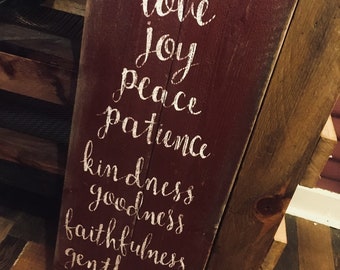 love
joy
peace
patience
kindness
goodness
faithfulness
gentl